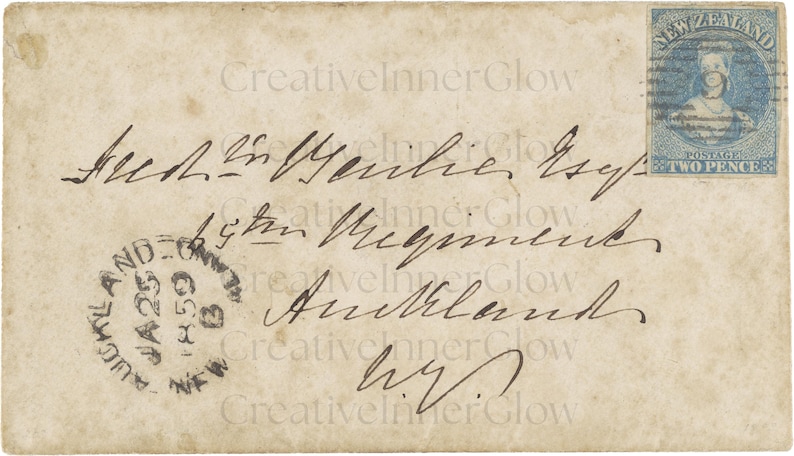 NEW ZEALAND
9
POSTAGE
TWO PENCE
Esqr
65th Regiment
Auckland
N.Z.
AUCKLAND
NEW
JA 25
1859
B
CreativeInnerGlow
CreativeInnerGlow
CreativeInnerGlow
CreativeInnerGlow
CreativeInnerGlow
CreativeInnerGlow